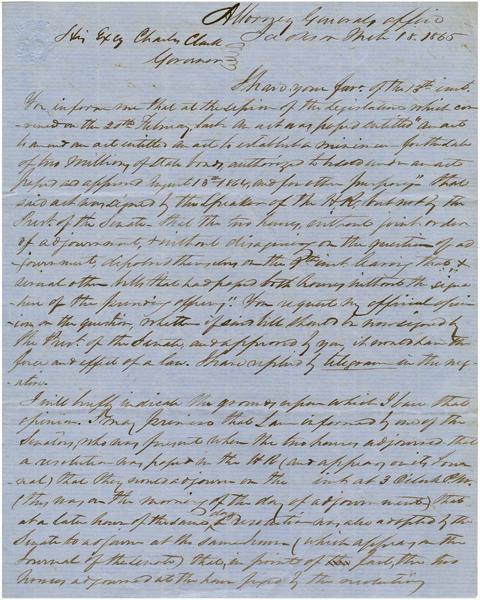 Attorney Generals office
Jackson Mch 18. 1865
His Excy Charles Clark
Governor &c
I have your fav. of the 13th inst.
You inform me that at the session of the legislature which con-
vened on the 20th February last an act was passed entitled "an act
to amend an act entitled an act to establish a minimum for the sale
of two millions of State bonds, authorized to be sold under an act
passed & approved August 13th 1864, and for other purposes" that
said act was signed by the Speaker of the H R, but not by the
Prest. of the Senate - that the two houses, without joint order
of adjournment, & without disagreeing on the question of ad
journment, dispersed themselves on the inst. leaving that &
several other bills that had passed both houses without the "signa-
ture of the presiding officers." You request my official opin-
ion on the question, whether if said bill should be now signed by
the Prest. of the Senate, and approved by you, it would have the
force and effect of a law. I have replied by telegram in the neg-
ative.
I will briefly indicate the grounds, upon which I give that
opinion. I may premise that I am informed by one of the
Senators, who was present when the two houses adjourned that
a resolution was passed in the H R (and appears on its Jour-
nal) that they would adjourn on the inst at 3 Oclock P.M.
(this was on the morning of the day of adjournment) that
at a later hour of the same day a resolution was also adopted by the
Senate to adjourn at the same hour (which appears on the
Journal of the Senate) that, in point of fact, the two
houses adjourned at the hour fixed by the resolutions